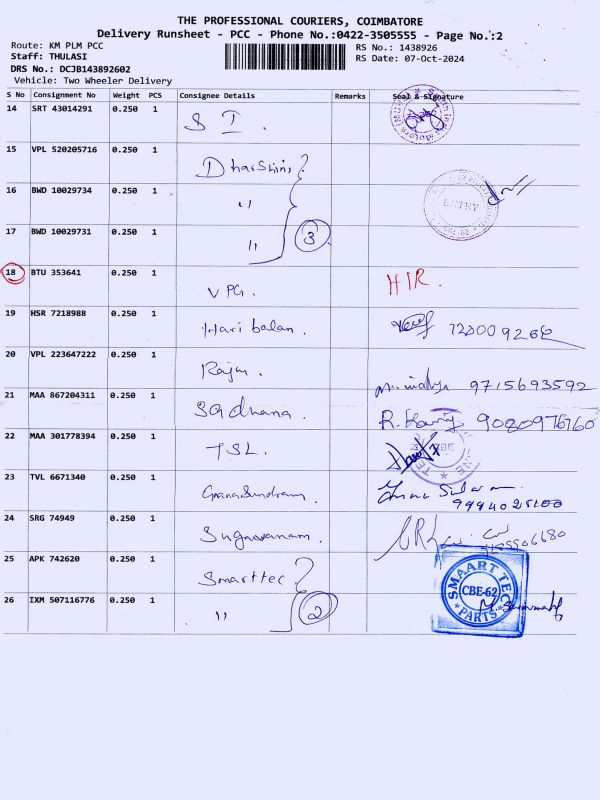 THE PROFESSIONAL COURIERS, COIMBATORE
Delivery Runsheet - PCC - Phone No.:0422-3505555 - Page No.:2
Route: KM PLM PCC
RS No.: 1438926
Staff: THULASI
RS Date: 07-Oct-2024
DRS No.: DCJB143892602
Vehicle: Two Wheeler Delivery
S No Consignment No Weight PCS Consignee Details Remarks Seal & Signature
14 SRT 43014291 0.250 1 S I.
15 VPL 520205716 0.250 1 Dharshini
16 BWD 10029734 0.250 1 "
ENTRY
CBE-62
17 BWD 10029731 0.250 1 " 3
18 BTU 353641 0.250 1 VPG. HIR.
19 HSR 7218988 0.250 1 Hari balan.
20 VPL 223647222 0.250 1 Rajm. 9715693592
21 MAA 867204311 0.250 1 Sadhana.
22 MAA 301778394 0.250 1 TSL.
23 TVL 6671340 0.250 1 GnanaSundram.
24 SRG 74949 0.250 1 Sugavanam.
25 APK 742620 0.250 1 Smarttec
26 IXM 507116776 0.250 1 " 2
SMAART TEC
CBE-62
PARTS